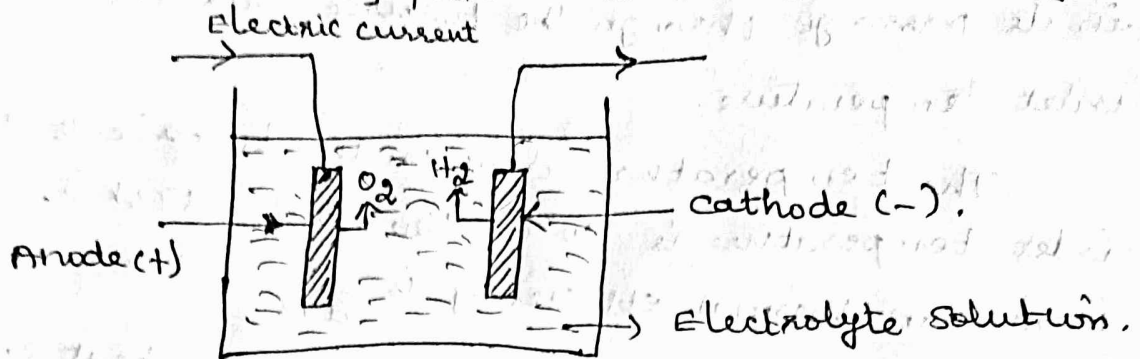 Electric current
O2
H2
Cathode (-).
Anode (+)
Electrolyte solution.